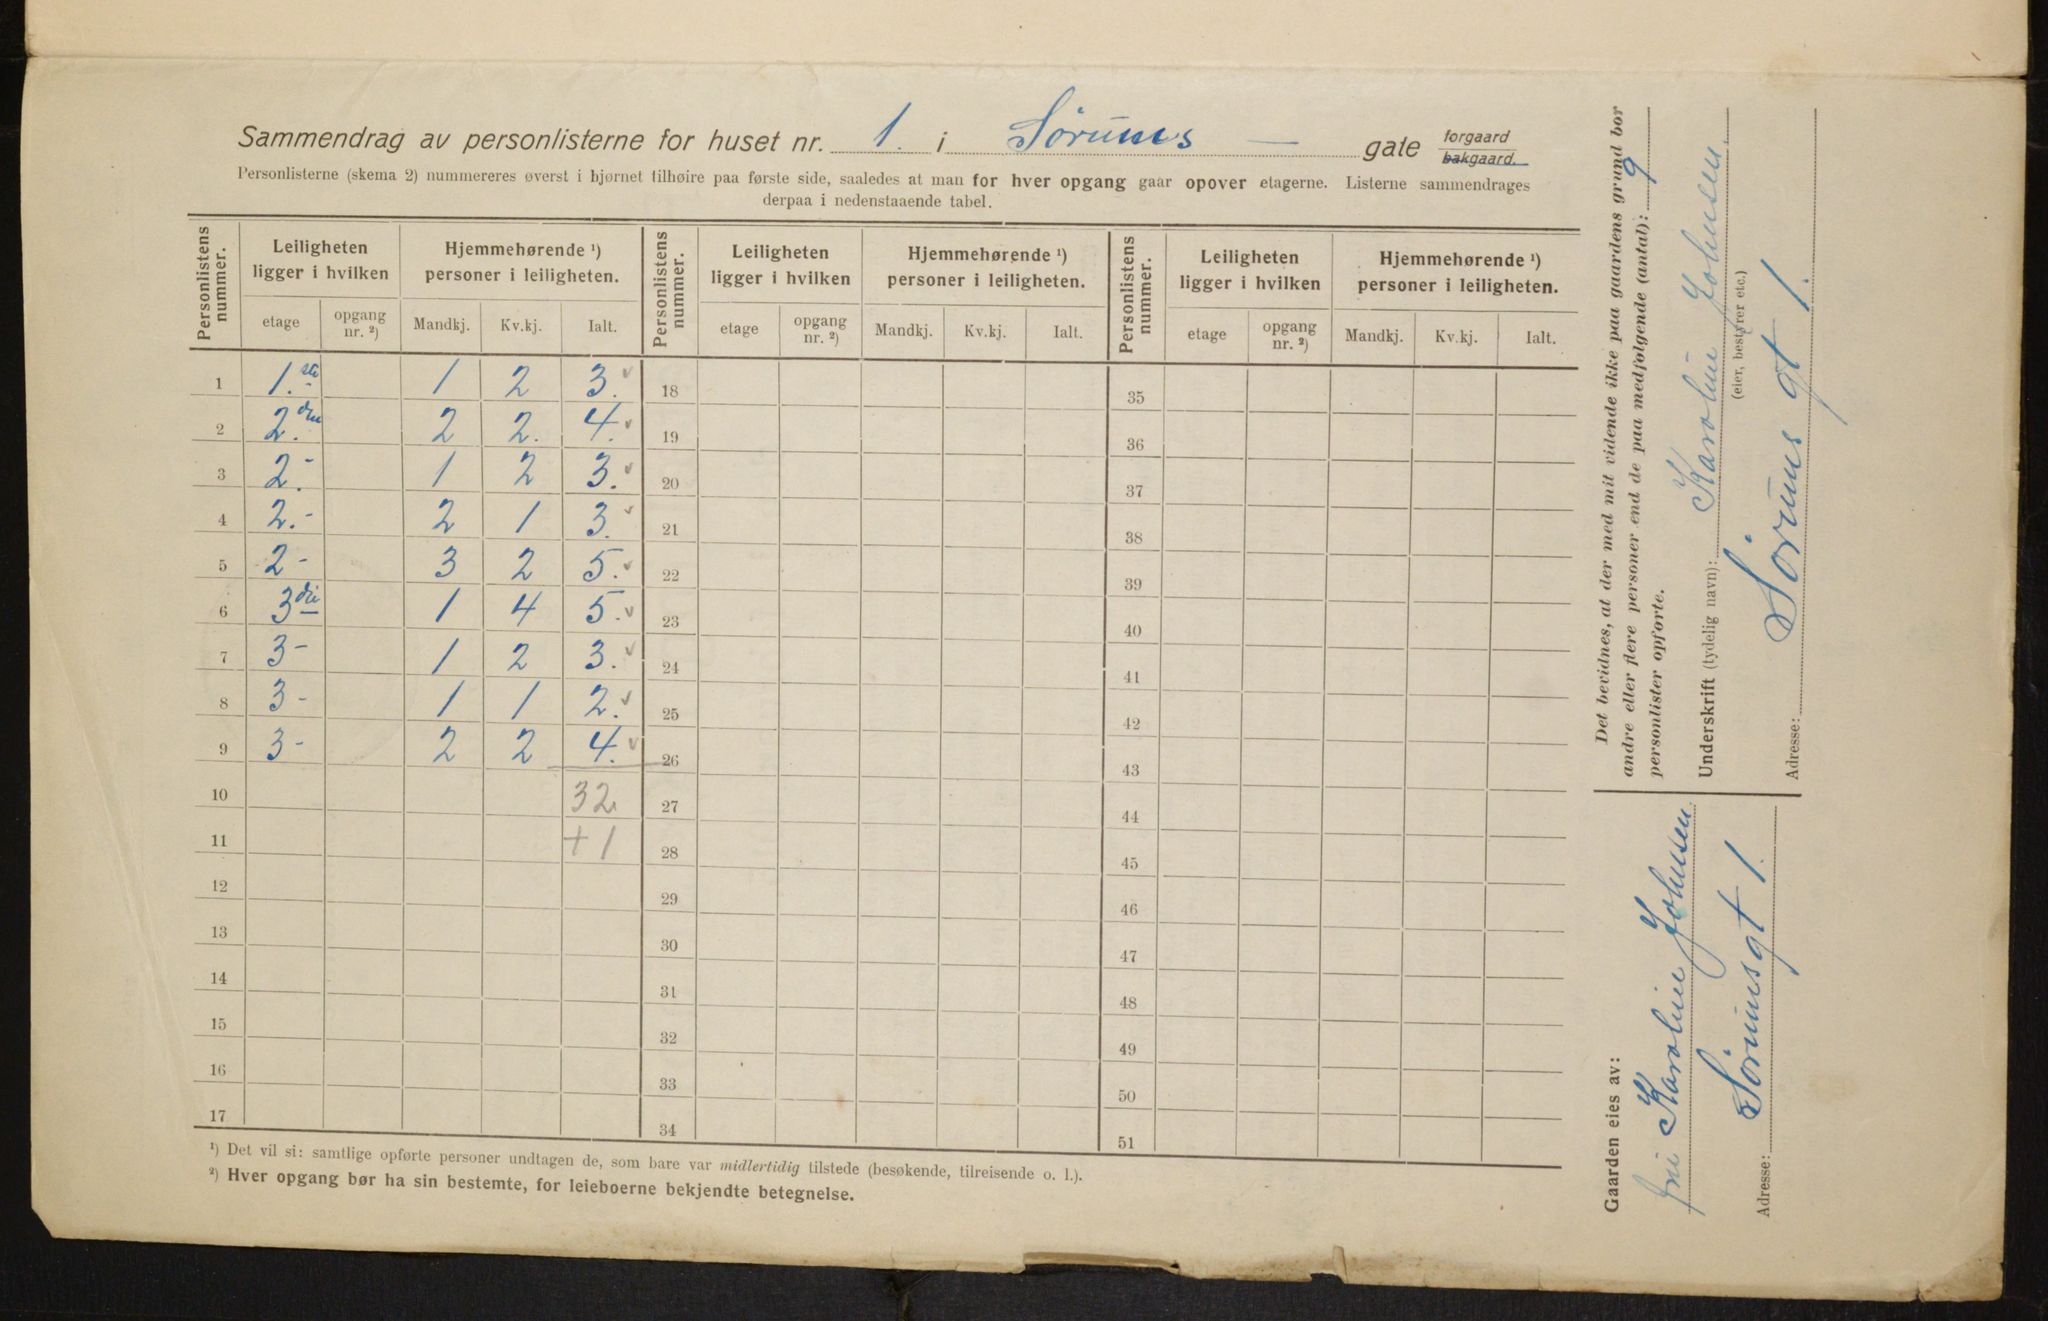 Sammendrag av personlisterne for huset nr. 1. i Sørums — gate forgaard bakgaard.
Personlisterne (skema 2) nummereres øverst i hjørnet tilhøire paa første side, saaledes at man for hver opgang gaar opover etagerne. Listerne sammendrages
derpaa i nedenstaaende tabel.
Personlistens nummer. Leiligheten ligger i hvilken Hjemmehørende ¹) personer i leiligheten. Personlistens nummer. Leiligheten ligger i hvilken Hjemmehørende ¹) personer i leiligheten. Personlistens nummer. Leiligheten ligger i hvilken Hjemmehørende ¹) personer i leiligheten.
etage opgang nr. ²) Mandkj. Kv.kj. Ialt. etage opgang nr. ²) Mandkj. Kv.kj. Ialt. etage opgang nr. ²) Mandkj. Kv.kj. Ialt.
1 1.ste 1 2 3. 18 35
2 2.den 2 2. 4. 19 36
3 2.- 1 2 3. 20 37
4 2.- 2 1 3. 21 38
5 2- 3 2 5. 22 39
6 3die 1 4 5. 23 40
7 3- 1 2 3. 24 41
8 3- 1 1 2. 25 42
9 3- 2 2 4. 26 43
10 32 27 44
11 +1 28 45
12 29 46
13 30 47
14 31 48
15 32 49
16 33 50
17 34 51
¹) Det vil si: samtlige opførte personer undtagen de, som bare var midlertidig tilstede (besøkende, tilreisende o. l.).
²) Hver opgang bør ha sin bestemte, for leieboerne bekjendte betegnelse.
Det bevidnes, at der med mit vidende ikke paa gaardens grund bor
andre eller flere personer end de paa medfølgende (antal): 9
personlister opførte.
Underskrift (tydelig navn): Karoline Johnsen.
(eier, bestyrer etc.)
Adresse: Sørums gt 1.
Gaarden eies av:
Frue Karoline Johnsen
Adresse: Sørumsgt 1.